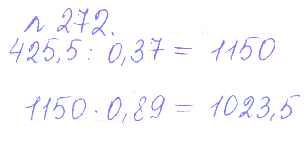 № 272.
425,5 : 0,37 = 1150
1150 · 0,89 = 1023,5